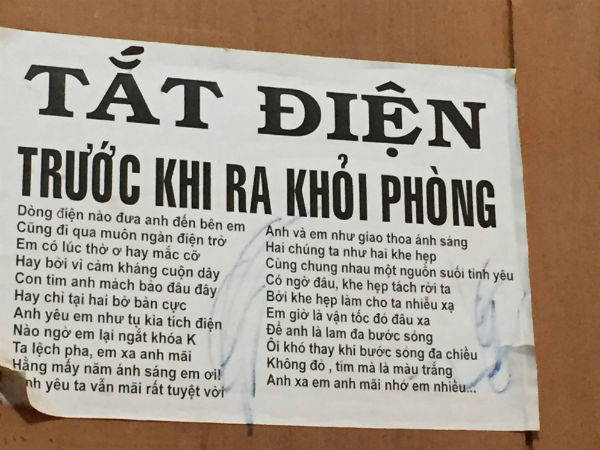 TẮT ĐIỆN
TRƯỚC KHI RA KHỎI PHÒNG
Dòng điện nào đưa anh đến bên em
Cũng đi qua muôn ngàn điện trở
Em có lúc thờ ơ hay mắc cỡ
Hay bởi vì cảm kháng cuộn dây
Con tim anh mách bảo đâu đây
Hay chỉ tại hai bờ bản cực
Anh yêu em như tụ kia tích điện
Nào ngờ em lại ngắt khóa K
Ta lệch pha, em xa anh mãi
Hằng mấy năm ánh sáng em ơi!
nh yêu ta vẫn mãi rất tuyệt vời
Anh và em như giao thoa ánh sáng
Hai chúng ta như hai khe hẹp
Cùng chung nhau một nguồn suối tình yêu
Có ngờ đâu, khe hẹp tách rời ta
Bởi khe hẹp làm cho ta nhiễu xạ
Em giờ là vận tốc đó đâu xa
Để anh là lam đa bước sóng
Ôi khó thay khi bước sóng đa chiều
Không đỏ , tím mà là màu trắng
Anh xa em anh mãi nhớ em nhiều...